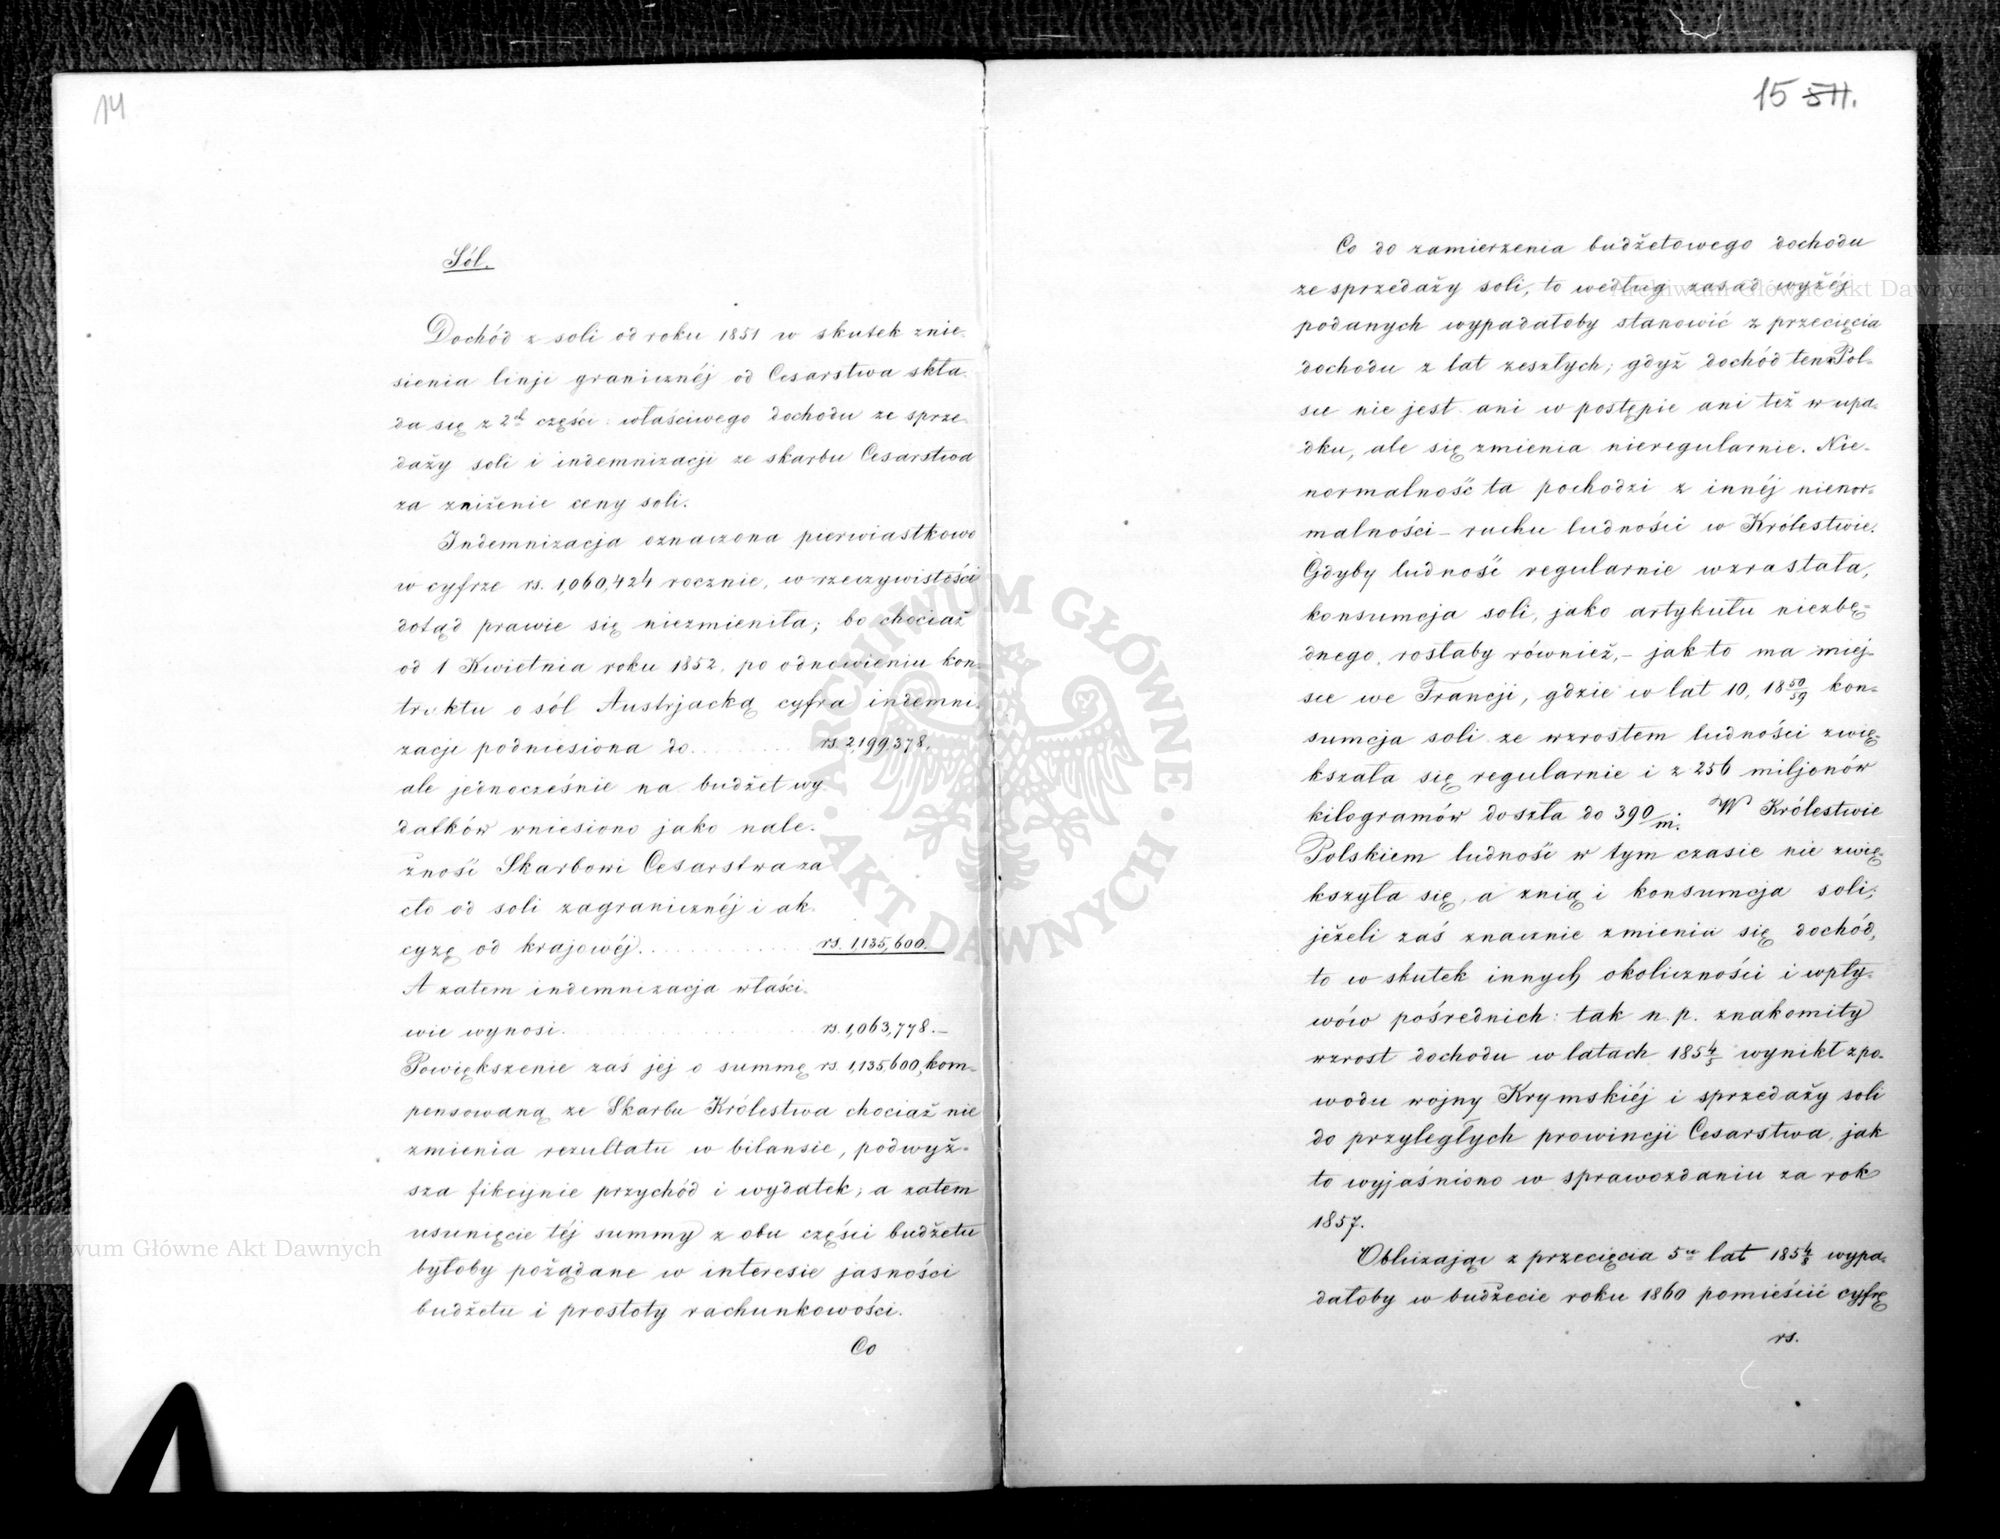 14
Sól.
Dochód z soli od roku 1851 w skutek znie-
sienia linji granicznéj od Cesarstwa skła-
da się z 2ch części: właściwego dochodu ze sprze-
daży soli i indemnizacji ze skarbu Cesarstwa
za zniżenie ceny soli.
Indemnizacja oznaczona pierwiastkowo
w cyfrze rs. 1,060,424 rocznie, w rzeczywistości
dotąd prawie się niezmieniła; bo chociaż
od 1 Kwietnia roku 1852, po odnowieniu kon-
traktu o sól Austrjacką cyfra indemni-
zacji podniesiona do . . . . . . . . . rs. 2,199,378.
ale jednocześnie na budżet wy-
datków wniesiono jako nale-
żność Skarbowi Cesarstwa za
cło od soli zagranicznéj i ak-
cyzę od krajowéj . . . . . . . . . . rs. 1,135,600.
A zatem indemnizacja właści-
wie wynosi . . . . . . . . . . rs. 1,063,778.—
Powiększenie zaś jej o summę rs. 1,135,600, kom-
pensowaną ze Skarbu Królestwa chociaż nie
zmienia rezultatu w bilansie, podwyż-
sza fikcyjnie przychód i wydatek; a zatem
usunięcie téj summy z obu części budżetu
byłoby pożądane w interesie jasności
budżetu i prostoty rachunkowości.
Co
15 511.
Co do zamierzenia budżetowego dochodu
ze sprzedaży soli, to według zasad wyżéj
podanych wypadałoby stanowić z przecięcia
dochodu z lat zeszłych; gdyż dochód ten w Pol-
sce nie jest ani w postępie ani też w upa-
dku, ale się zmienia nieregularnie. Nie-
normalność ta pochodzi z innéj nienor-
malności – ruchu ludności w Królestwie.
Gdyby ludność regularnie wzrastała,
konsumcja soli, jako artykułu niezbę-
dnego, rosłaby również, – jak to ma miej-
sce we Francji, gdzie w lat 10, 1850/59 kon-
sumcja soli ze wzrostem ludności zwię-
kszała się regularnie i z 256 miljonów
kilogramów doszła do 390/m. W Królestwie
Polskiem ludność w tym czasie nie zwię-
kszyła się, a z nią i konsumcja soli;
jeżeli zaś znacznie zmienia się dochód,
to w skutek innych okoliczności i wpły-
wów pośrednich: tak n.p. znakomity
wzrost dochodu w latach 1854/5 wynikł z po-
wodu wojny Krymskiéj i sprzedaży soli
do przyległych prowincji Cesarstwa, jak
to wyjaśniono w sprawozdaniu za rok
1857.
Obliczając z przecięcia 5cu lat 1854/8 wypa-
dałoby w budżecie roku 1860 pomieścić cyfrę
rs.
ARCHIWUM GŁÓWNE · AKT DAWNYCH ·
Archiwum Główne Akt Dawnych
Archiwum Główne Akt Dawnych